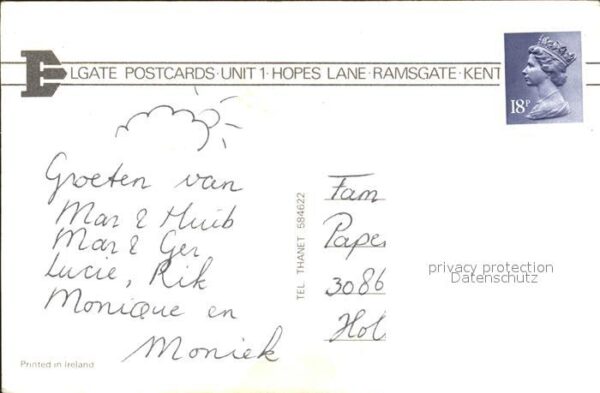 ELGATE POSTCARDS · UNIT 1 · HOPES LANE · RAMSGATE · KENT
18P
Groeten van
Mar & Huib
Mar & Ger
Lucie, Rik
Monique en
Moniek
Printed in Ireland
TEL THANET 584622
Fam
Pape
3086
Hol
privacy protection
Datenschutz